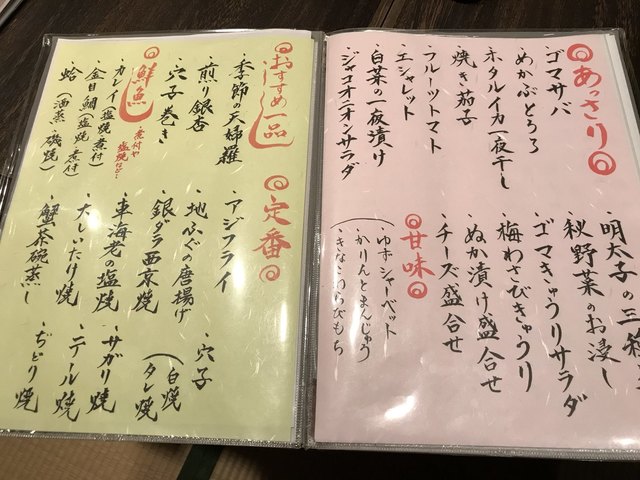 ◎あっさり◎
・ゴマサバ
・めかぶとろろ
・ホタルイカ一夜干し
・焼き茄子
・フルーツトマト
・エシャレット
・白菜の一夜漬け
・ジャコオニオンサラダ
・明太子の三
・秋野菜のお浸し
・ゴマきゅうりサラダ
・梅わさびきゅうり
・ぬか漬け盛合せ
・チーズ盛合せ
◎甘味◎
・ゆずシャーベット
・かりんとまんじゅう
・きなこわらびもち
◎おすすめ一品
・季節の天婦羅
・煎り銀杏
・穴子巻き
◎鮮魚
煮付や
塩焼など…
・カレイ(塩焼 煮付)
・金目鯛(塩焼 煮付)
・蛤(酒蒸・磯焼)
◎定番◎
・アジフライ
・地ふぐの唐揚げ
・銀ダラ西京焼
・車海老の塩焼
・大しいたけ焼
・蟹茶碗蒸し
・穴子
(白焼
タレ焼)
・サガリ焼
・テール焼
・ぢどり焼